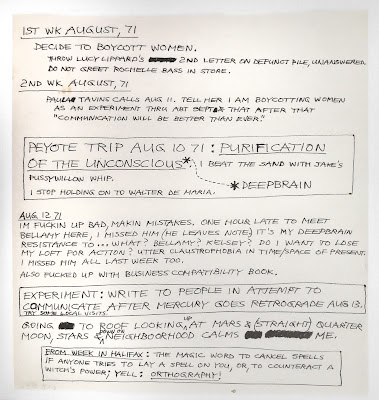 1ST WK AUGUST, 71
DECIDE TO BOYCOTT WOMEN.
THROW LUCY LIPPARD'S 2ND LETTER ON DEFUNCT PILE, UNANSWERED.
DO NOT GREET ROCHELLE BASS IN STORE.
2ND WK AUGUST, 71
PAULA TAVINS CALLS AUG 11. TELL HER I AM BOYCOTTING WOMEN
AS AN EXPERIMENT THRU ABT SEPT & THAT AFTER THAT
"COMMUNICATION WILL BE BETTER THAN EVER."
PEYOTE TRIP AUG 10 71 : PURIFICATION
OF THE UNCONSCIOUS* I BEAT THE SAND WITH JAKE'S
PUSSYWILLOW WHIP.
*DEEPBRAIN
I STOP HOLDING ON TO WALTER DE MARIA.
AUG 12 71
IM FUCKIN UP BAD, MAKIN MISTAKES. ONE HOUR LATE TO MEET
BELLAMY HERE, I MISSED HIM (HE LEAVES NOTE) IT'S MY DEEPBRAIN
RESISTANCE TO... WHAT? BELLAMY? KELSEY? DO I WANT TO LOSE
MY LOFT FOR ACTION? UTTER CLAUSTROPHOBIA IN TIME/SPACE OF PRESENT.
I MISSED HIM ALL LAST WEEK TOO.
ALSO FUCKED UP WITH BUSINESS COMPATIBILITY BOOK.
EXPERIMENT: WRITE TO PEOPLE IN ATTEMPT TO
COMMUNICATE AFTER MERCURY GOES RETROGRADE AUG 13.
TRY SOME LOCAL VISITS.
GOING TO ROOF LOOKING UP AT MARS & (STRAIGHT) QUARTER
MOON, STARS & DOWN ON NEIGHBOORHOOD CALMS ME.
FROM WEEK IN HALIFAX : THE MAGIC WORD TO CANCEL SPELLS
IF ANYONE TRIES TO LAY A SPELL ON YOU, OR, TO COUNTERACT A
WITCH'S POWER; YELL: ORTHOGRAPHY!